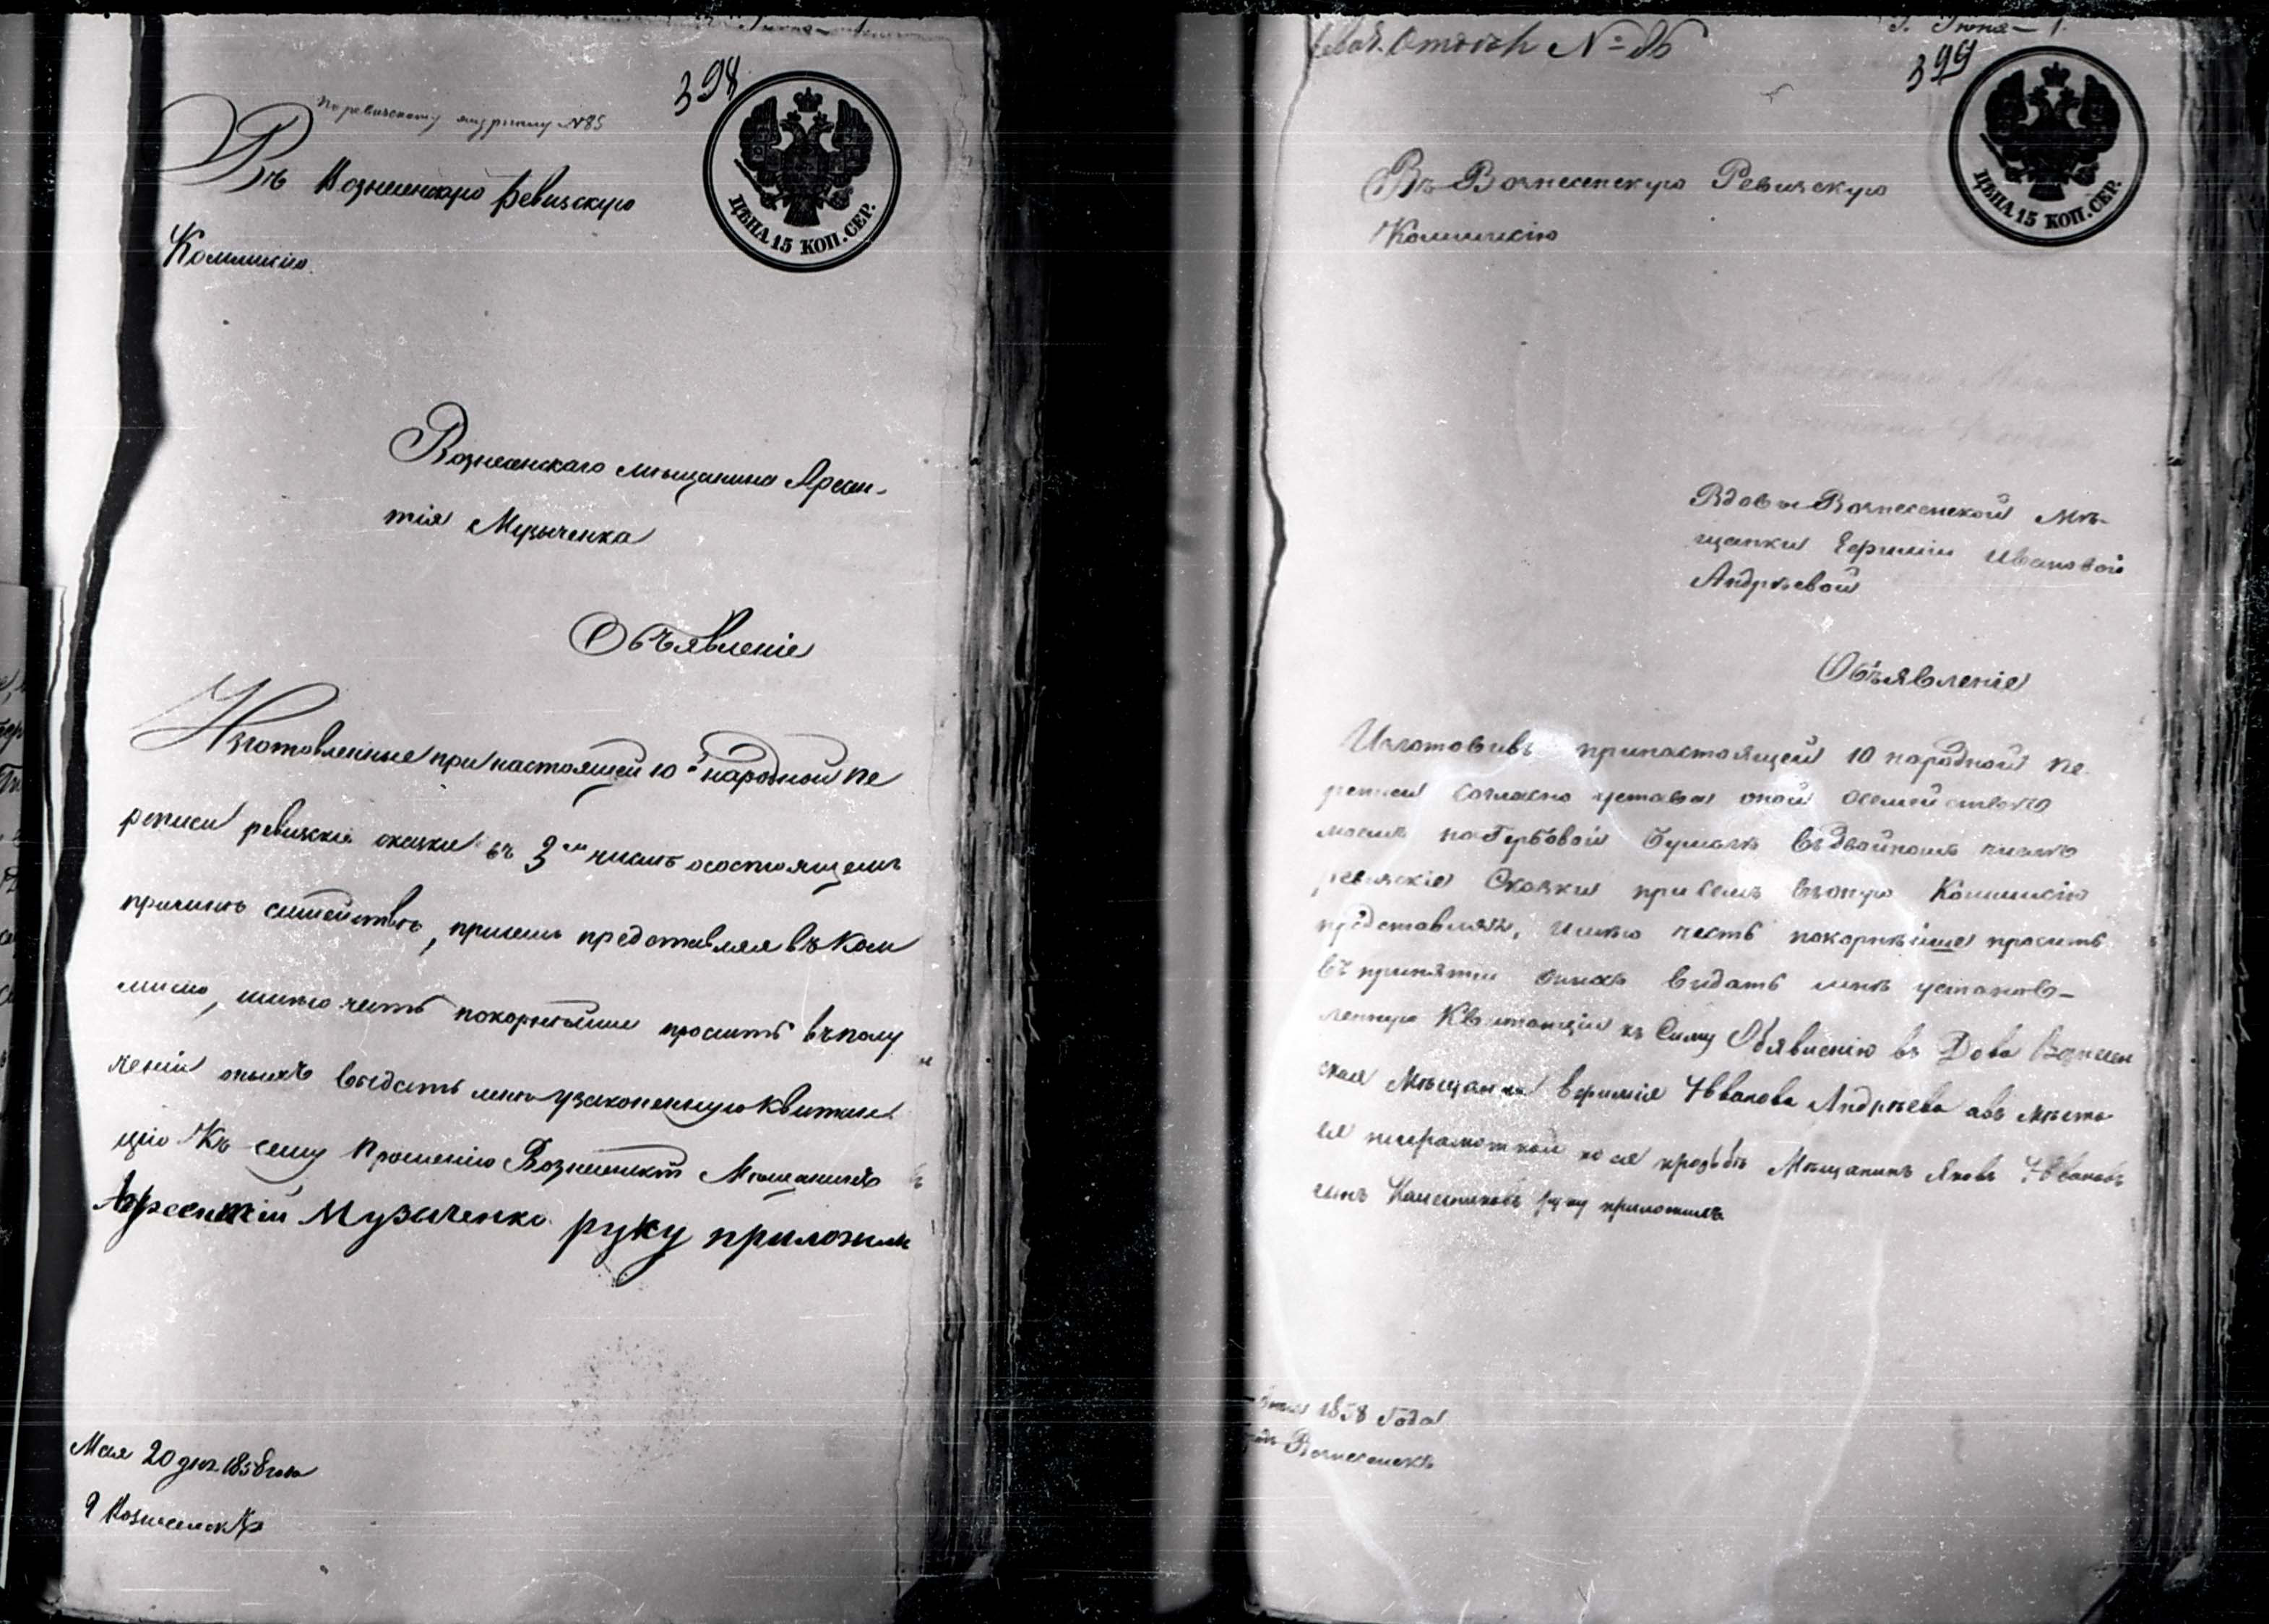 398
По ревизскому журналу №85
Въ Вознесенскую Ревизскую
Коммисію
ЦѢНА 15 КОП. СЕР.
Вознесенскаго мѣщанина Арсен-
тія Музыченка
Объявленіе
Изготовленные при настоящей 10й народной пе
реписи ревизкія сказки въ 3мъ числѣ осостоящемъ
семействѣ, присемъ представляя въ Ком
мисію, имѣю честь покорнѣйше просить вполу
ченіи оныхъ выдать мнѣ узаконенную квитан
цію Къ сему Прошенію Вознесенскій Мѣщанинъ
Арсентій Музыченко руку приложилъ
Мая 20 дня 1858 года
Г Вознесенскъ
№ 86
Іюня 1
399
Въ Вознесенскую Ревизскую
Коммисію
ЦѢНА 15 КОП. СЕР.
Вдовы Вознесенской мѣ-
щанки Ефиміи Ивановой
Андрѣевой
Объявленіе
Изготовивъ принастоящей 10 народной пе
реписи согласно устава оной осемействѣ
моемъ на Гербовой бумагѣ въ двойномъ числѣ
ревизскіе Сказки присемъ вьоную Коммисію
представляя, имѣю честь покорнѣйше просить
въ принятіи оныхъ видать мнѣ установ-
ленную Квитанцію къ Сему Объявленію вдова Вознесен
ская Мѣщанка Ефимія Иванова Андрѣева авъ мѣсто
ея неграмотной по ея прозьбѣ Мѣщанинъ Яковъ Ивановъ
сынъ руку приложилъ
1858 Года
Вознесенскъ